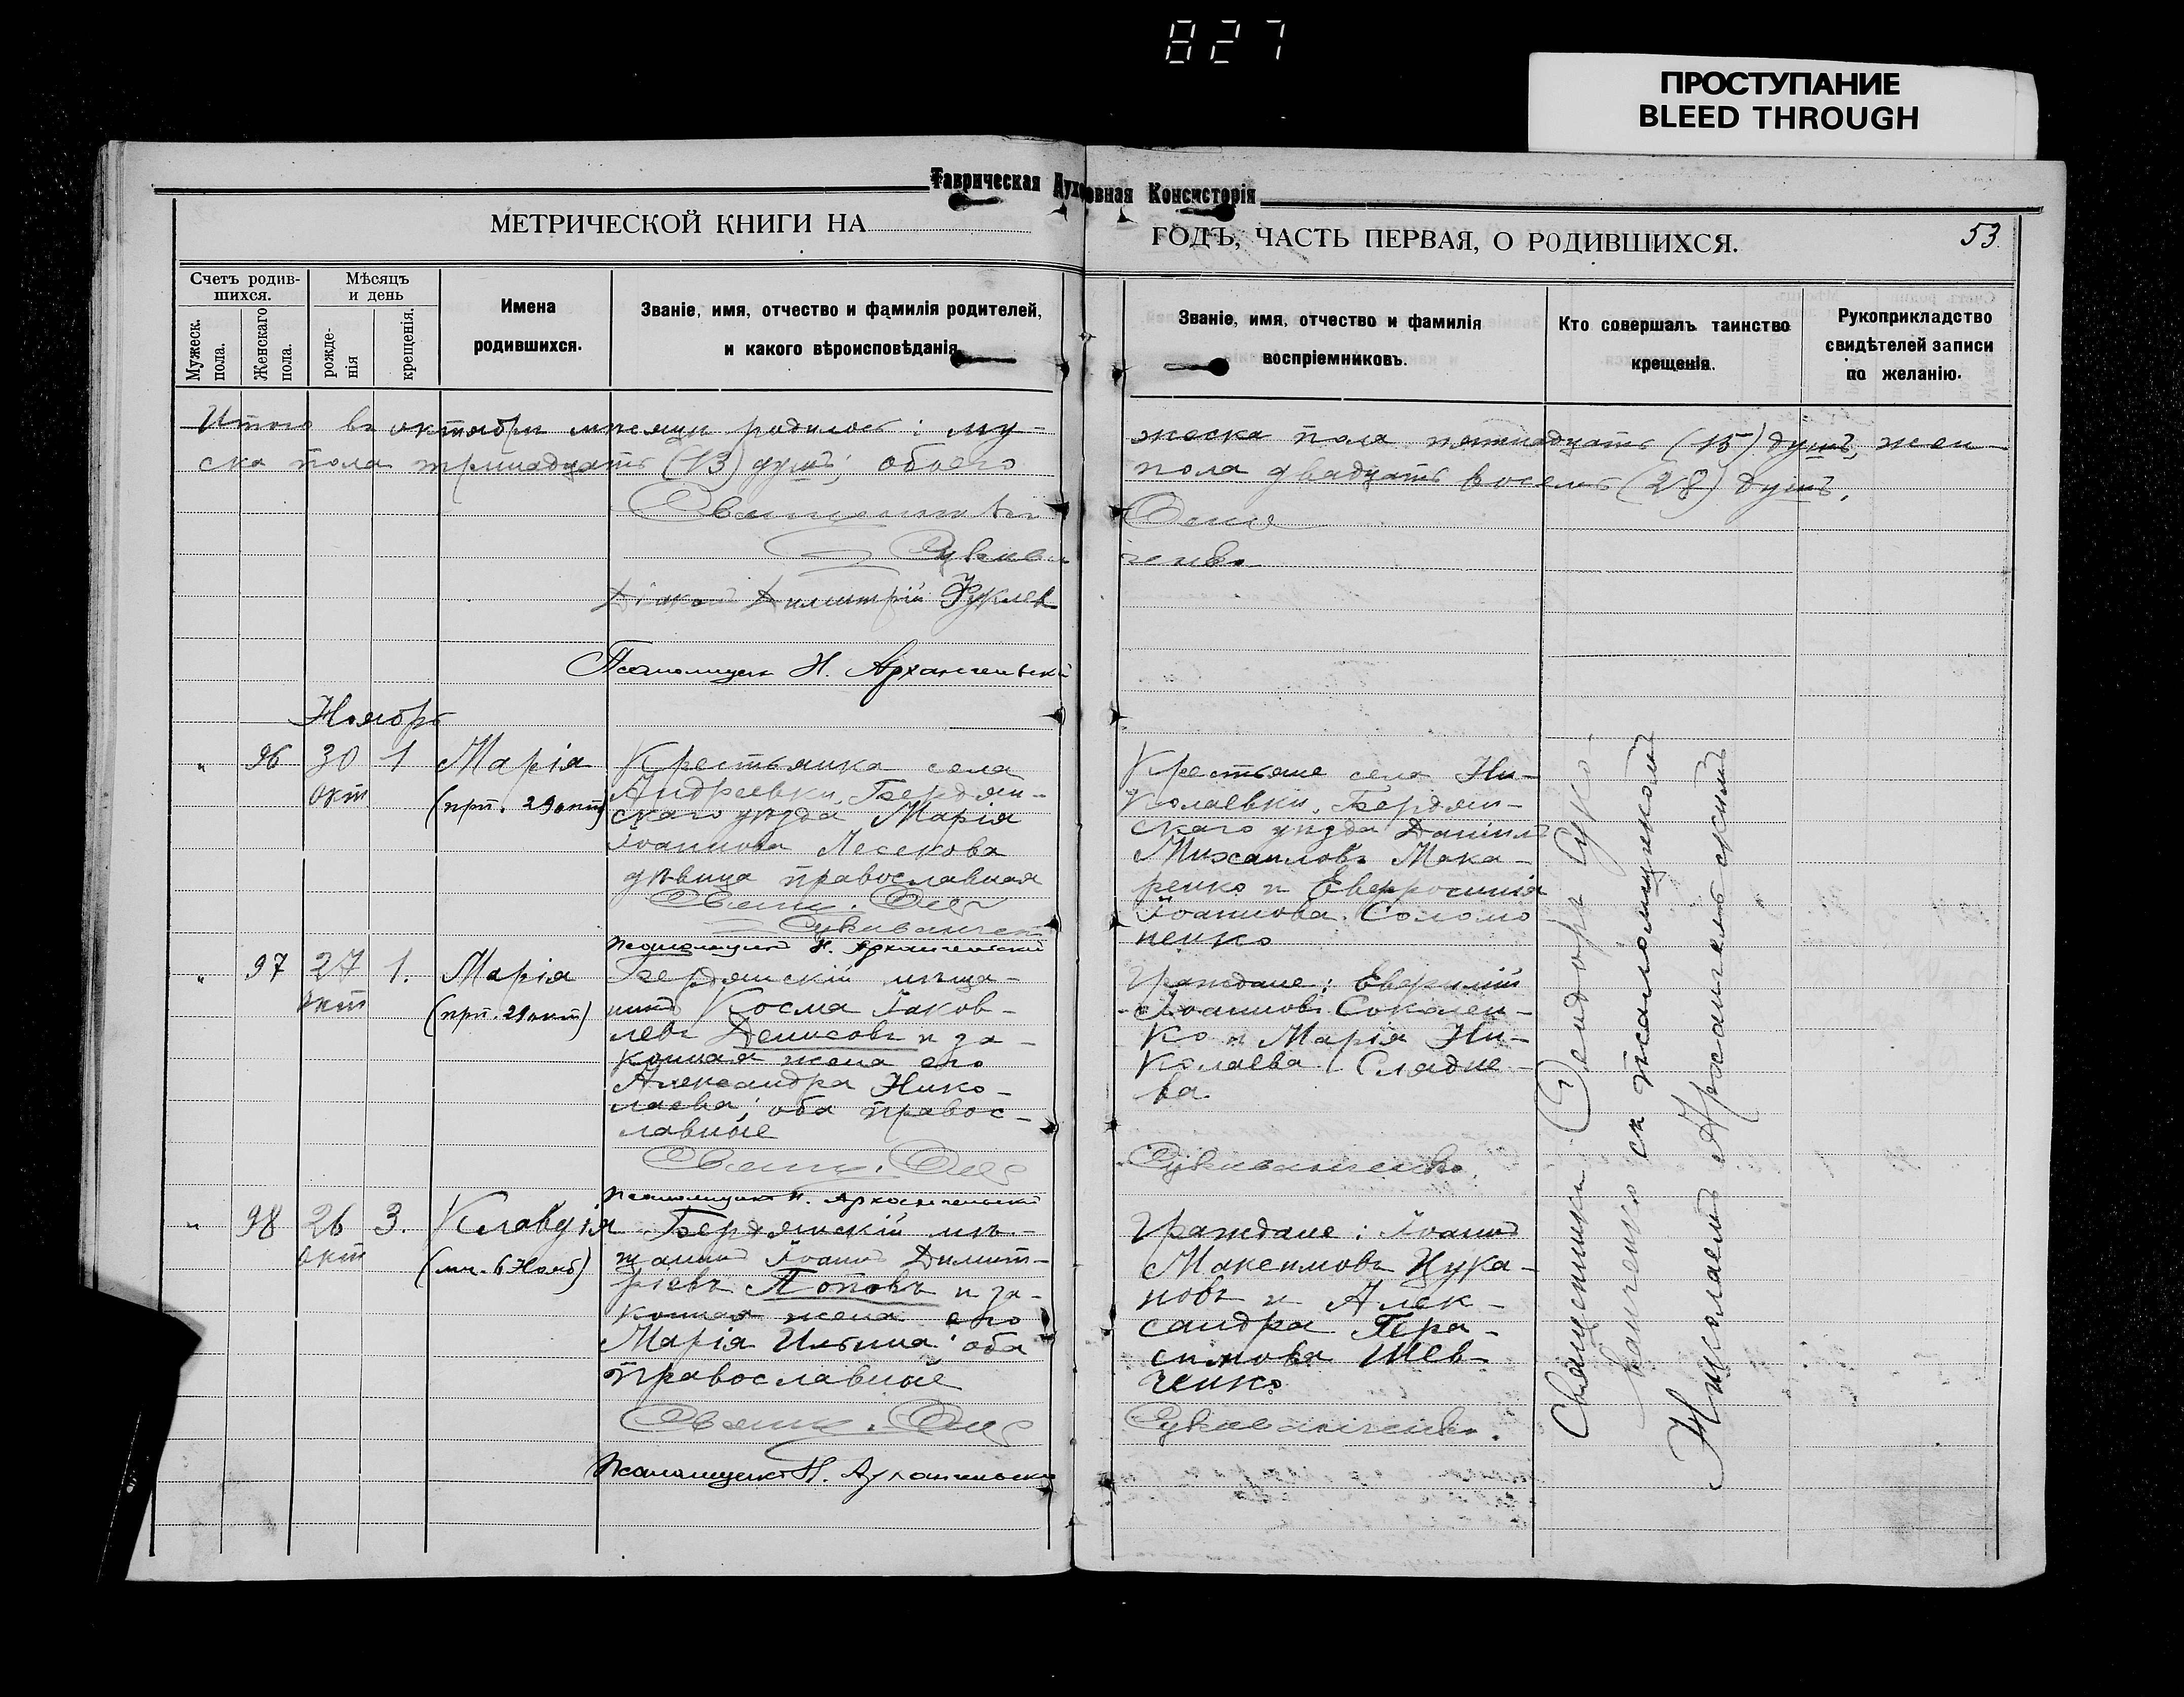 827
ПРОСТУПАНИЕ
BLEED THROUGH
Таврическая Духовная Консисторія
МЕТРИЧЕСКОЙ КНИГИ НА
ГОДЪ, ЧАСТЬ ПЕРВАЯ, О РОДИВШИХСЯ.
53
Счетъ родив-
шихся.
Мужеск.
пола.
Женскаго
пола.
Мѣсяцъ
и день
рожде-
нія
крещенія.
Имена
родившихся.
Званіе, имя, отчество и фамилія родителей,
и какого вѣроисповѣданія.
Званіе, имя, отчество и фамилія
воспріемниковъ.
Кто совершалъ таинство
крещенія.
Рукоприкладство
свидѣтелей записи
по желанію.
Итого въ октябрѣ мѣсяцѣ родилось: му-
жеска пола пятнадцать (15) душъ, жен-
ска пола тринадцать (13) душъ; обоего
пола двадцать восемь (28) душъ.
Священникъ
Діаконъ Димитрій
Псаломщикъ Н. Архангельскій
Ноябрь
"
96
30
окт
1
Марія
(прп. 29 окт)
Крестьянка села
Андреевки, Бердян-
скаго уѣзда Марія
Іоаннова Лесекова
дѣвица православная
Свящ. Ѳео
Сукиванчен
Псаломщикъ Н. Архангельскій
Крестьяне села Ни-
колаевки, Бердян-
скаго уѣзда Даніилъ
Михаиловъ Мака-
ренко и Евфросинія
Іоаннова Соломо
ненко
"
97
27
окт
1.
Марія
(прп. 29 окт)
Бердянскій мѣща-
нинъ Косма Іаков-
левъ Денисовъ и за-
конная жена его
Александра Нико-
лаева; оба правос-
лавные
Свящ. Ѳео
Сукиванченко.
Псаломщикъ Н. Архангельскій
Граждане: Евфимій
Іоанновъ Соколен-
ко и Марія Ни-
колаева Сладне-
ва.
"
98
26
окт
3.
Клавдія
(мч. 6 Нояб)
Бердянскій мѣ-
щанинъ Іоаннъ Димит-
ріевъ Поповъ и за-
конная жена его
Марія Ильина; оба
православные
Свящ. Ѳео
Сукиванченко.
Псаломщикъ Н. Архангельскій
Граждане: Іоаннъ
Максимовъ Цука-
новъ и Алек-
сандра Гера-
симова Шев-
ченко
Священникъ Ѳеодоръ Суки-
ванченко съ псаломщикомъ
Николаемъ Архангельскимъ